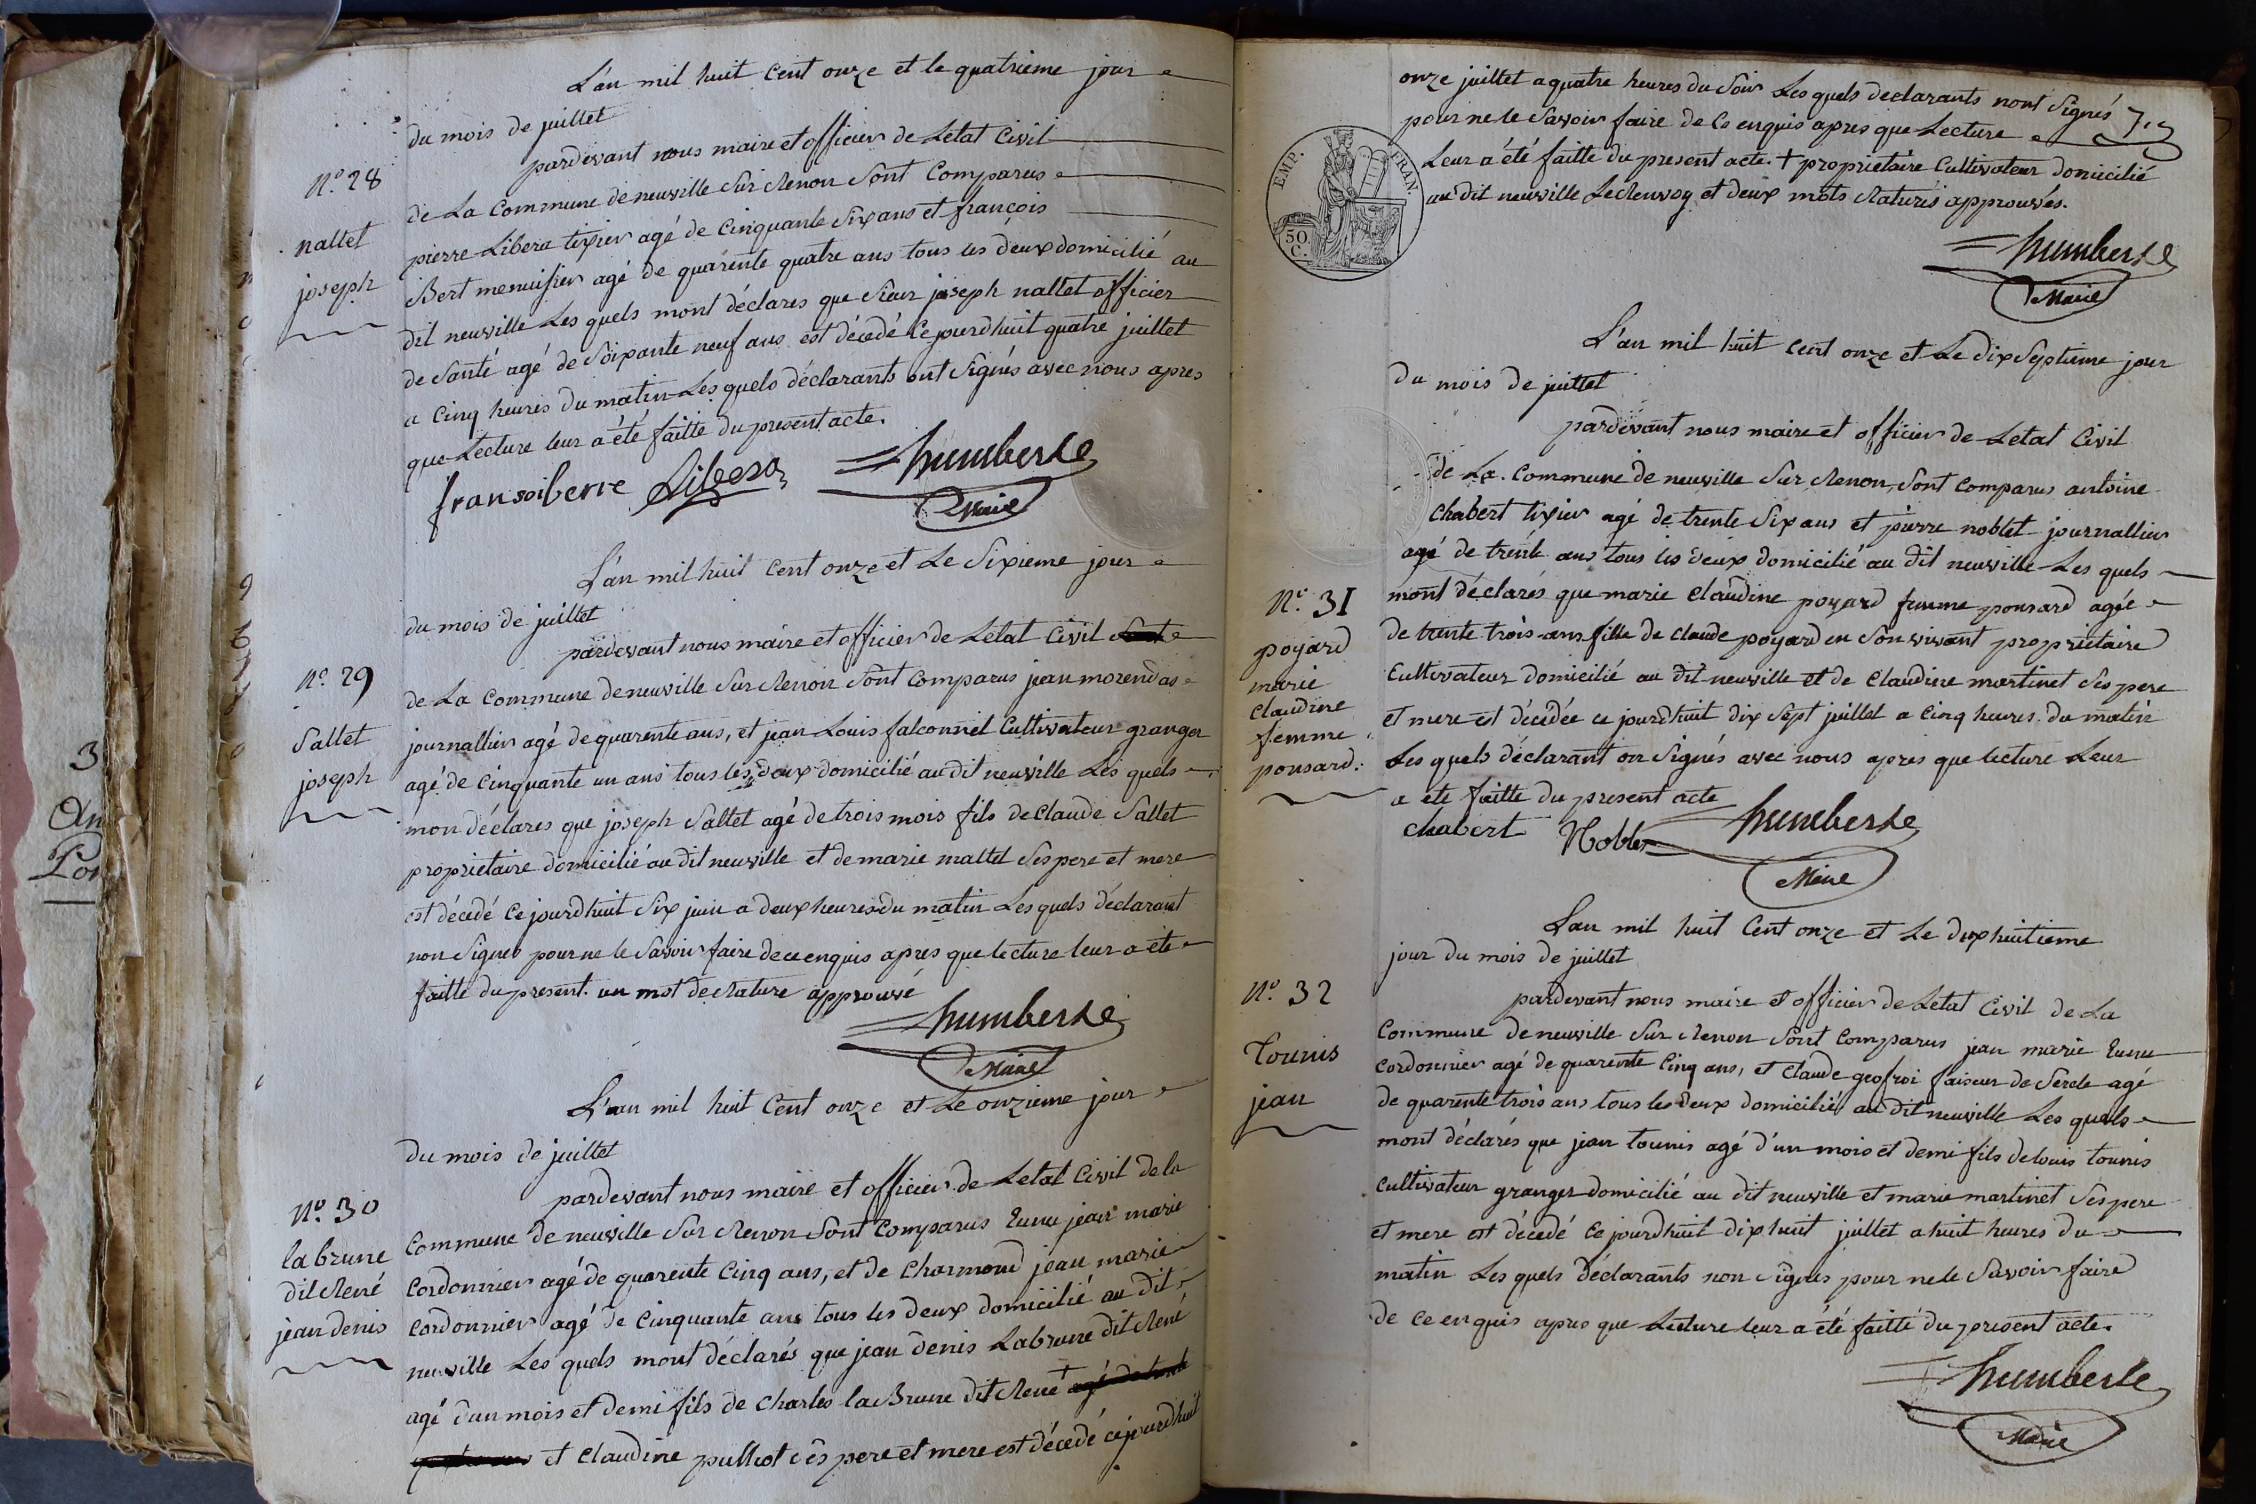 L'an mil huit cent onze et le quatrieme jour
du mois de juillet
pardevant nous maire et officier de Letat Civil
N.° 28
de La Commune de neuville Sur Renon Sont Comparus
nallet
pierre Libera tixier agé de Cinquante Six ans et françois
joseph
Bert menuisier agé de quarente quatre ans tous les deux domicilié au
dit neuville Les quels mont déclarés que Sieur joseph nallet officier
de Santé agé de Soixante neuf ans est décedé Ce jourdhuit quatre juillet
a Cinq heures du matin Les quels déclarants ont Signés avec nous apres
que Lecture leur a été faitte du present acte.
fransoiberre Libera humberte
Maire
L'an mil huit Cent onze et Le Sixieme jour
du mois de juillet
pardevant nous maire et officier de Letat Civil
N.° 29
de La Commune de neuville Sur Renon Sont Comparus jean morendas
Sallet
journallier agé de quarente ans, et jean Louis falconnet Cultivateur granger
joseph
agé de Cinquante un ans tous les deux domicilié au dit neuville Les quels
mon déclares que joseph Sallet agé de trois mois fils de Claude Sallet
proprietaire domicilié au dit neuville et de marie mallet Ses pere et mere
est décedé Ce jourdhuit Six juin a deux heures du matin Les quels déclarant
non Signes pour ne le Savoir faire de ce enquis apres que lecture leur a été
faitte du present. un mot de Rature approuvé
humberte
Maire
L'an mil huit Cent onze et Le onzieme jour
du mois de juillet
pardevant nous maire et officier de Letat Civil de la
N.° 30
Commune de neuville Sur Renon Sont Comparus jean marie
la brune
Cordonnier agé de quarente Cinq ans, et de Charmond jean marie
dit René
Cordonnier agé de Cinquante ans tous les deux domicilié au dit
jean denis
neuville Les quels mont déclarés que jean denis Labrune dit René
agé dun mois et demi fils de Charles la Brune dit René +
et Claudine pulliat Ses pere et mere est décedé Ce jourdhuit
onze juillet a quatre heures du Soir Les quels declarants nont Signés
pour ne le Savoir faire de Ce enquis apres que Lecture
Leur a été faitte du present acte. + proprietaire Cultivateur domicilié
au dit neuville Le Renvoy et deux mots Raturés approuvés.
EMP. FRAN.
50
C.
humberte
Maire
L'an mil huit Cent onze et Le dix Septieme jour
du mois de juillet
pardevant nous maire et officier de Letat Civil
de La Commune de neuville Sur Renon, Sont Comparus antoine
Chabert tixier agé de trente Six ans et pierre noblet journallier
agé de trente ans tous les deux domicilié au dit neuville Les quels
N.° 31
mont déclarés que marie Claudine poyard femme ponsard agée
poyard
de trente trois ans fille de Claude poyard en Son vivant proprietaire
marie
Cultivateur domicilié au dit neuville et de Claudine martinet Ses pere
claudine
et mere est décedée ce jourdhuit dix Sept juillet a Cinq heures du matin
femme
Les quels déclarant on Signés avec nous apres que lecture Leur
ponsard.
a été faitte du present acte
chabert Noblet humberte
Maire
Lan mil huit Cent onze et Le dixhuitieme
jour du mois de juillet
N.° 32
pardevant nous maire et officier de Letat Civil de La
Commune de neuville Sur Renon Sont Comparus jean marie
Tounis
Cordonnier agé de quarente Cinq ans, et Claude geofroi faiseur de Sercle agé
jean
de quarente trois ans tous les deux domicilié au dit neuville Les quels
mont déclarés que jean tounis agé d'un mois et demi fils de louis tounis
Cultivateur granger domicilié au dit neuville et marie martinet Ses pere
et mere est décedé Ce jourdhuit dixhuit juillet a huit heures du
matin Les quels déclarants non Signés pour ne le Savoir faire
de Ce enquis apres que Lecture leur a été faitté du present acte.
humberte
Maire